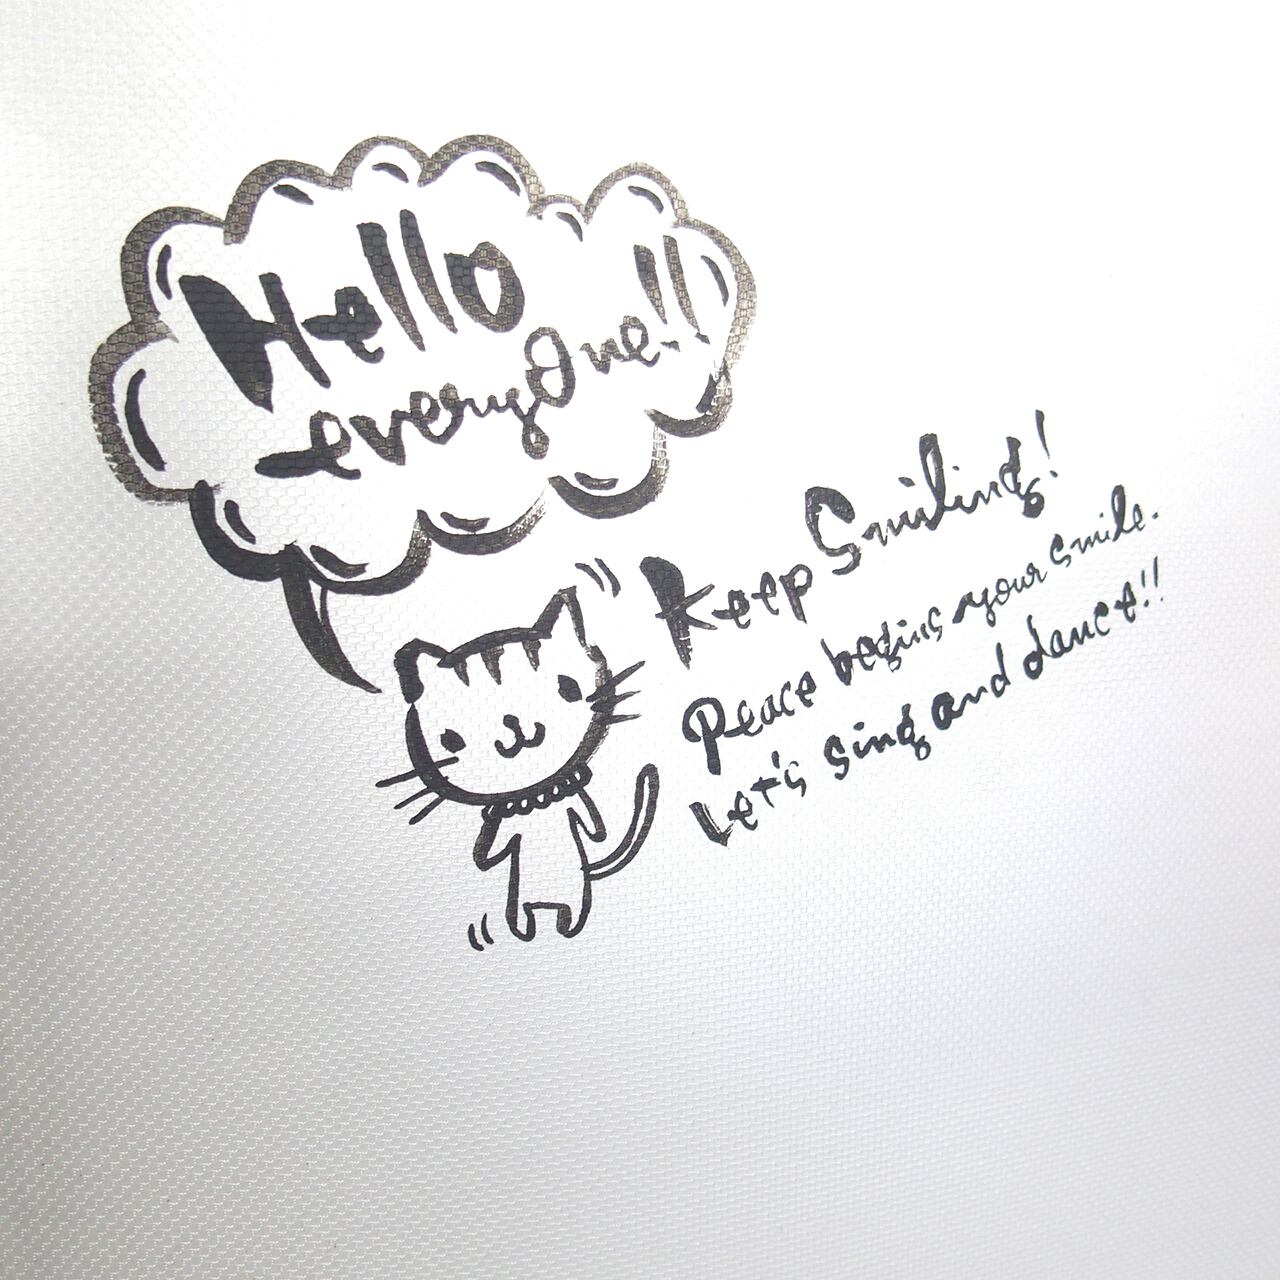 Hello
everyone!!
Keep Smiling!
Peace begins your smile.
Let's sing and dance!!